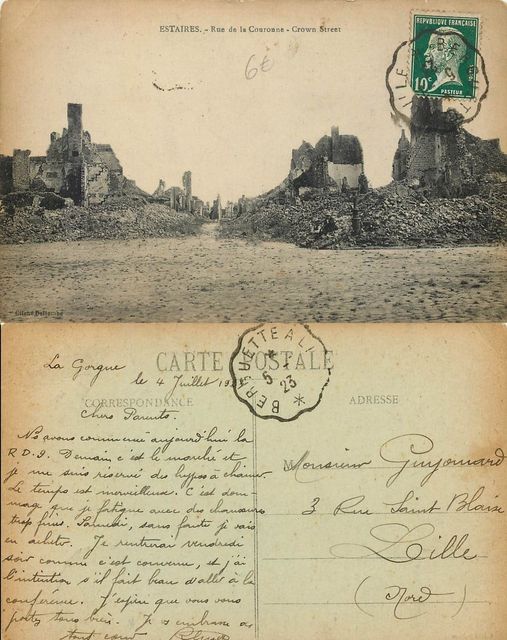 ESTAIRES. - Rue de la Couronne - Crown Street
6€
REPUBLIQUE FRANÇAISE
10c
PASTEUR
LILLE
BERGUETTE A LILLE
5
23
CARTE POSTALE
CORRESPONDANCE
ADRESSE
La Gorgue
le 4 Juillet
Chers Parents.
Ns avons commencé aujourd'hui la
R.D. Demain c'est le marché et
je me suis réservé des à
Le temps est merveilleux. C'est dom-
mage que je fatigue avec des chaussures
trop fines. Samedi, sans faute je vais
en acheter. Je rentrerai vendredi
soir comme c'est convenu, et j'ai
l'intention s'il fait beau d'aller à la
conférence. J'espère que vous vous
portez tous bien. Je vs embrasse de
tout cœur
Monsieur Guyomard
3 Rue Saint Blaise
Lille
(Nord)